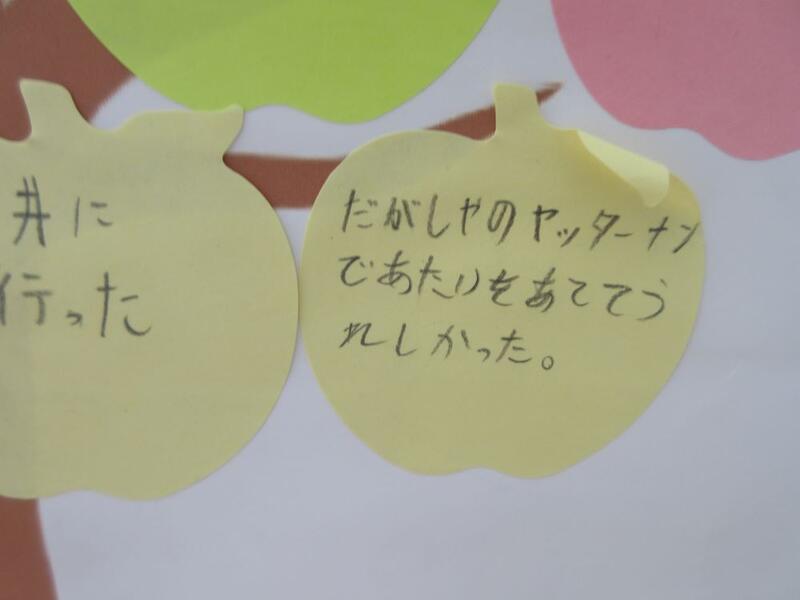 井に
行った
だがしやのヤッターナン
であたりをあててう
れしかった。